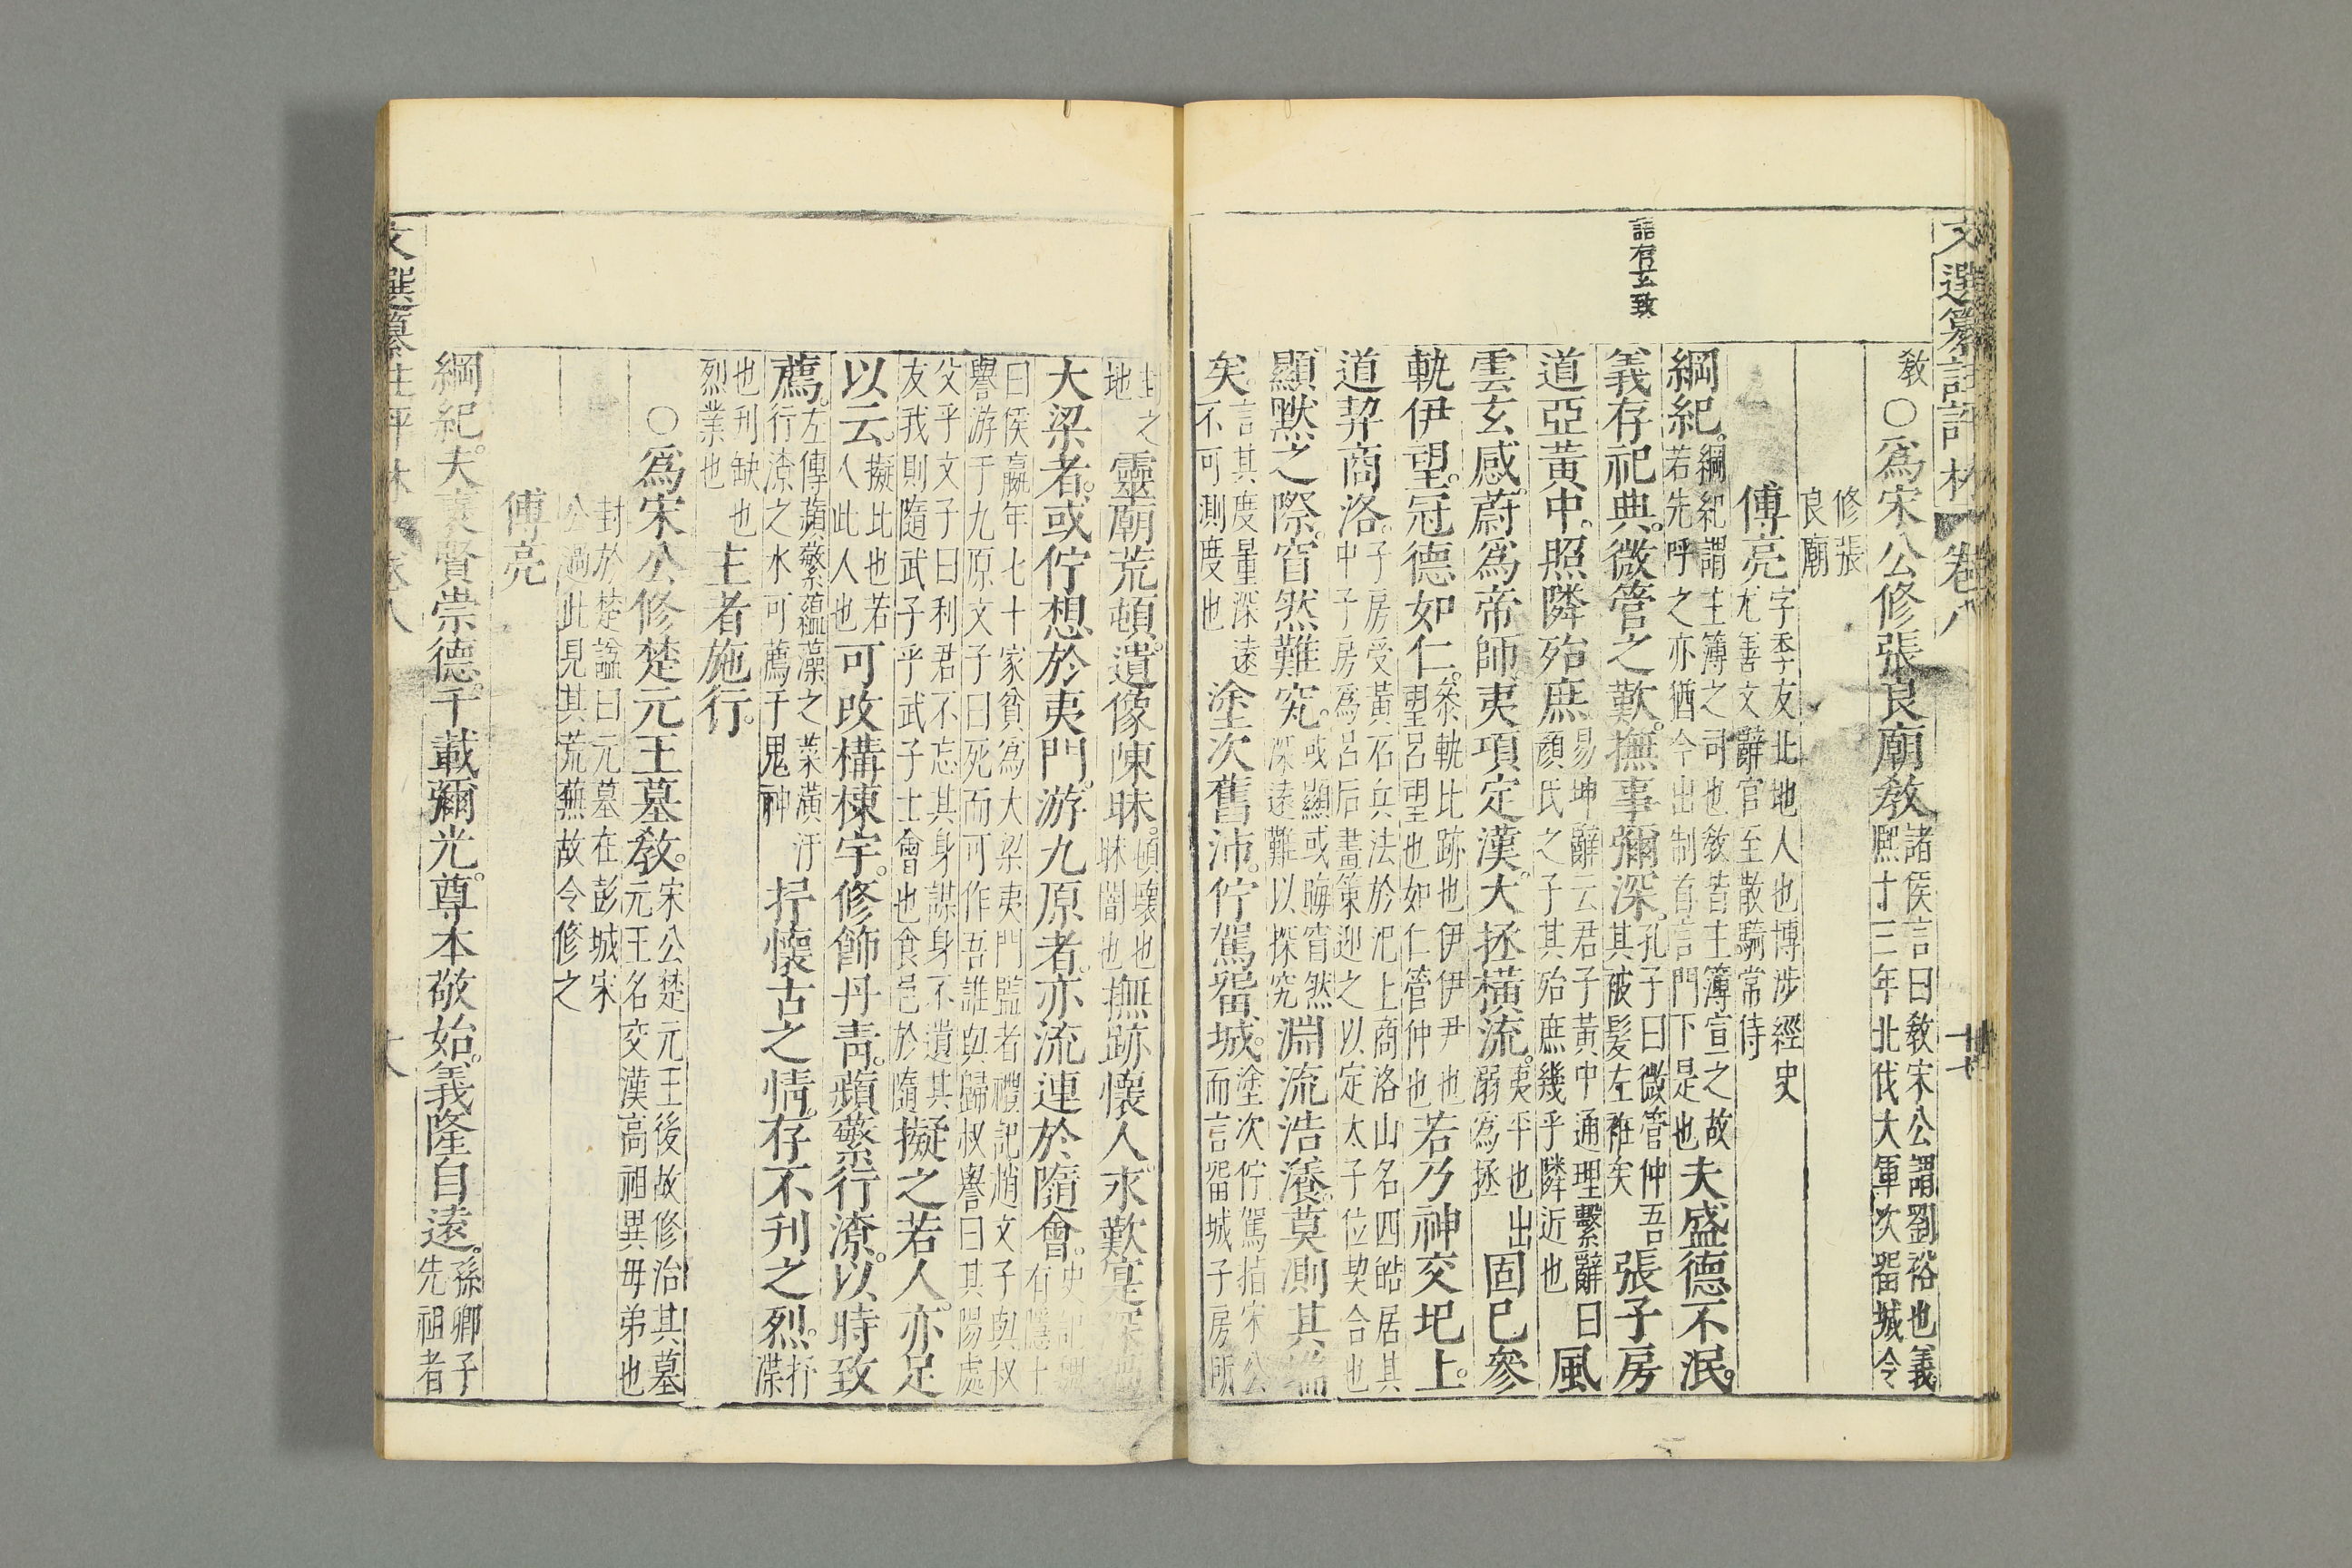 文選纂註評林 卷八
語有玄致
教
○爲宋公修張良廟教 諸侯言曰教宋公謂劉裕也義
熙十三年北伐大軍次留城令
修張
良廟
傅亮 字季友北地人也博涉經史
尤善文辭官至散騎常侍
綱紀。綱紀謂主簿之司也教皆主簿宣之故
若先呼之亦猶今出制首言門下是也 夫盛德不泯。
義存祀典。微管之歎。撫事彌深。孔子曰微管仲吾
其被髮左袵矣 張子房
道亞黃中。照隣殆庶。易坤辭云君子黃中通理繫辭曰
顏氏之子其殆庶幾乎隣近也 風
雲玄感。蔚爲帝師。夷項定漢。大拯橫流。夷平也出
溺爲拯 固已參
軌伊望。冠德如仁。叅軌比跡也伊伊尹也
望呂望也如仁管仲也 若乃神交圯上。
道契商洛。子房受黃石兵法於汜上商洛山名四皓居其
中子房爲呂后畫策迎之以定太子位契合也
顯默之際。窅然難究。或顯或晦窅然
深遠難以探究 淵流浩瀁。莫測其端
矣。言其度量深遠
不可測度也 塗次舊沛。佇駕留城。塗次佇駕指宋公
而言留城子房所
封之
地 靈廟荒頓。遺像陳昧。頓壞也
昧闇也 撫跡懷人。永歎寔深。過
大梁者。或佇想於夷門。游九原者。亦流連於隨會。史記魏
有隱士
曰侯嬴年七十家貧爲大梁夷門監者禮記趙文子與叔
譽游于九原文子曰死而可作吾誰與歸叔譽曰其陽處
父乎文子曰利君不忘其身謀身不遺其
友我則隨武子乎武子士會也食邑於隨 擬之若人。亦足
以云。擬比也若
人此人也 可改構棟宇。修飾丹靑。蘋蘩行潦。以時致
薦。左傳蘋蘩蘊藻之菜潢汙
行潦之水可薦于鬼神 抒懷古之情。存不刋之烈。抒
渫
也刋缺也
烈業也 主者施行。
○爲宋公修楚元王墓教。宋公楚元王後故修治其墓
元王名交漢高祖異毋弟也
封於楚謚曰元墓在彭城宋
公過此見其荒蕪故令修之
傅亮
綱紀。夫褒賢崇德。千載彌光。尊本敬始。義隆自遠。孫卿子
先祖者
文選纂註評林 卷八